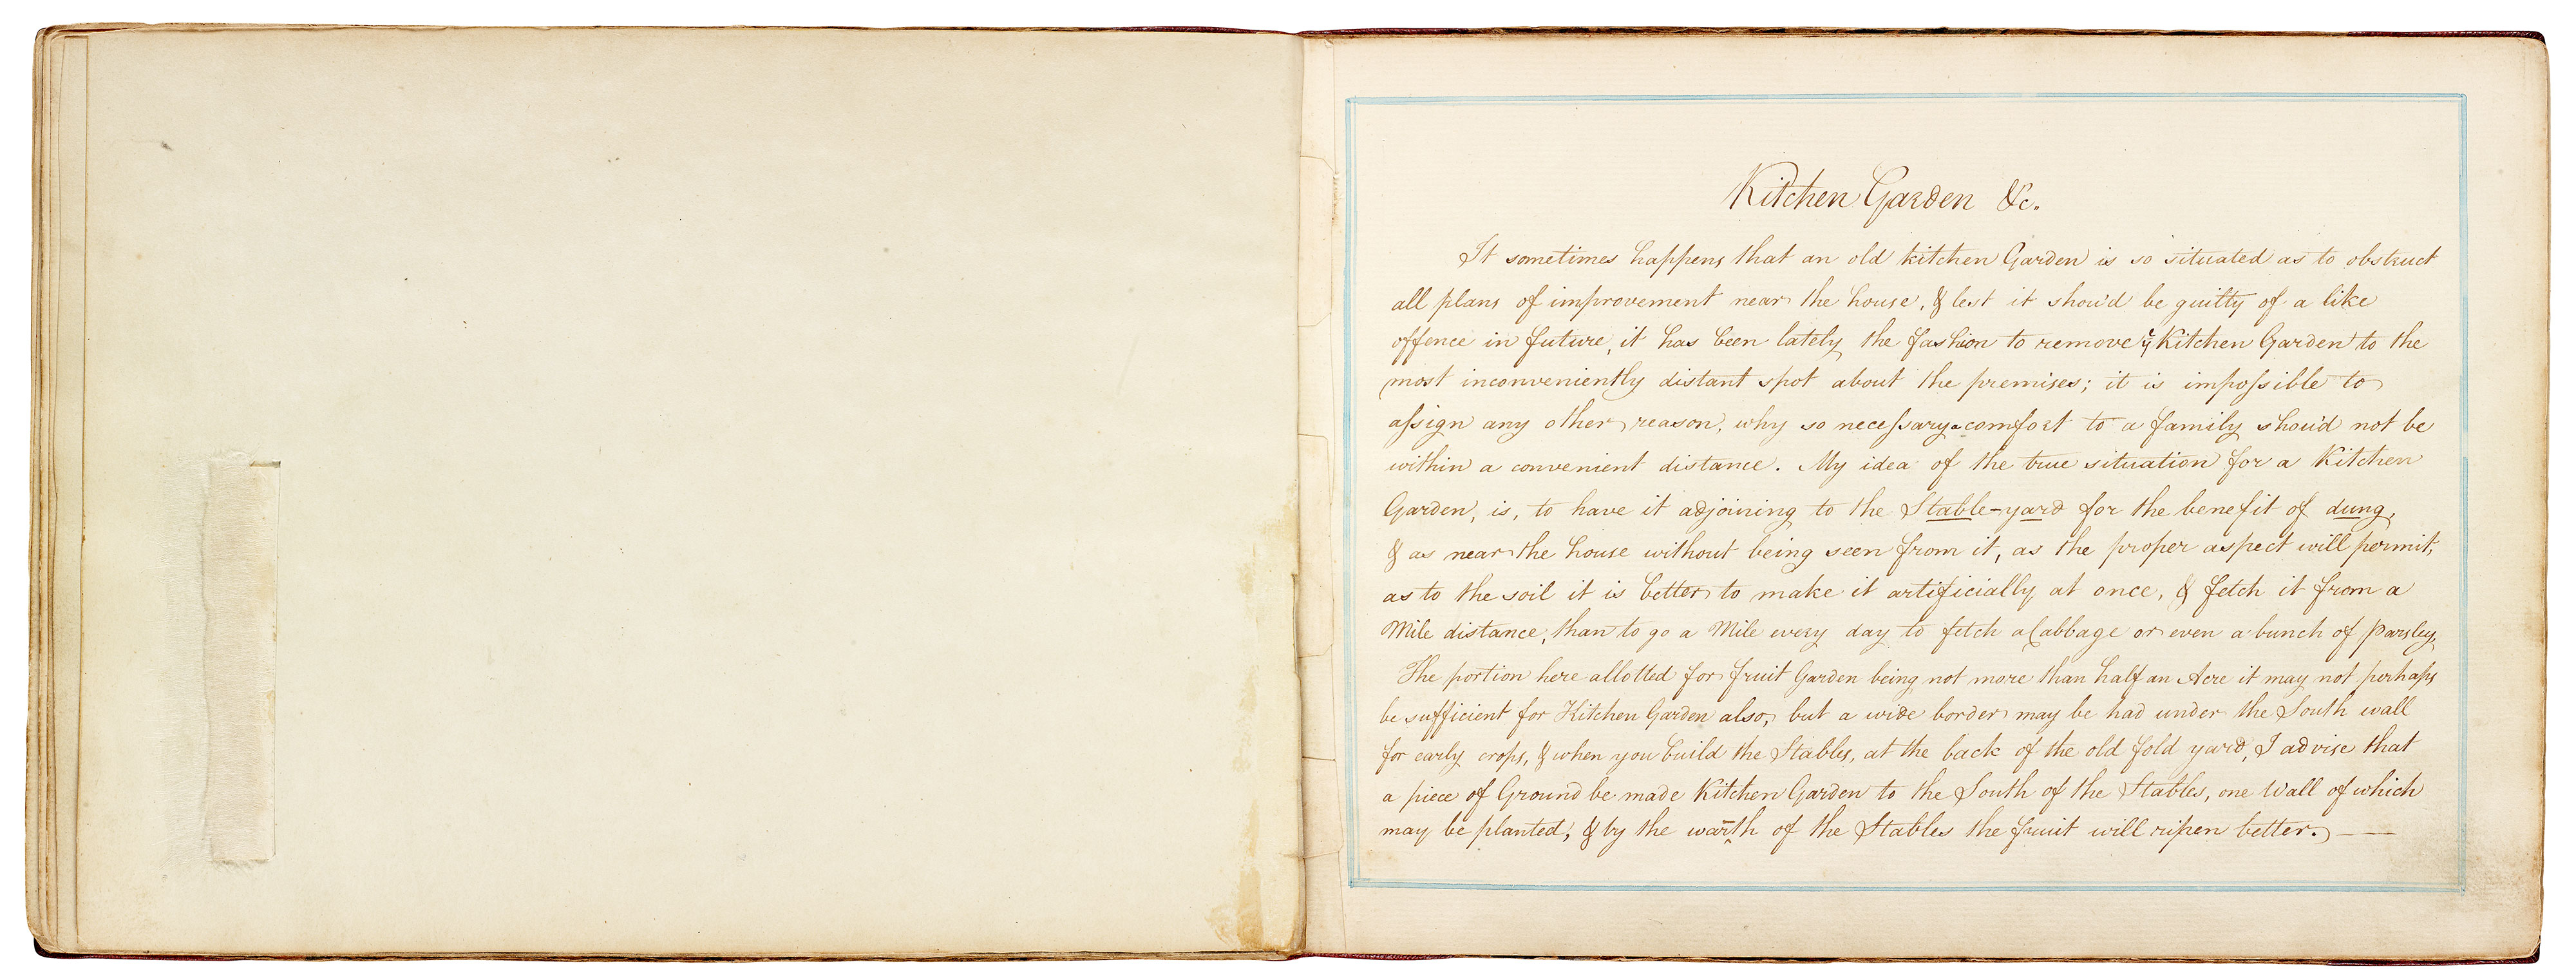 Kitchen Garden &c.
It sometimes happens that an old kitchen Garden is so situated as to obstruct
all plans of improvement near the house, & lest it shou'd be guilty of a like
offence in future, it has been lately the fashion to remove yᵉ Kitchen Garden to the
most inconveniently distant spot about the premises; it is impoſsible to
aſsign any other reason, why so neceſsary a comfort to a family shou'd not be
within a convenient distance. My idea of the true situation for a Kitchen
Garden, is, to have it adjoining to the Stable-yard for the benefit of dung,
& as near the house without being seen from it, as the proper aspect will permit,
as to the soil it is better to make it artificially at once, & fetch it from a
Mile distance, than to go a Mile every day to fetch a Cabbage or even a bunch of Parsley,
The portion here allotted for fruit Garden being not more than half an Acre it may not perhaps
be sufficient for Kitchen Garden also, but a wide border may be had under the South wall
for early crops, & when you build the Stables, at the back of the old fold yard, I advise that
a piece of Ground be made Kitchen Garden to the South of the Stables, one Wall of which
may be planted, & by the warmth of the Stables the fruit will ripen better. —